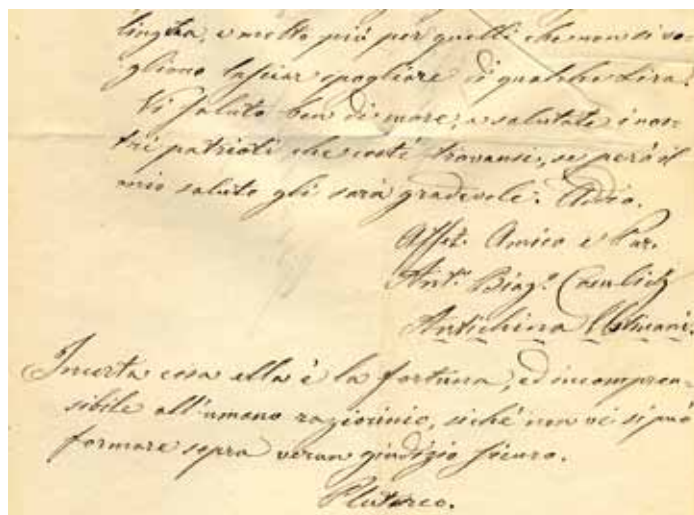 lingua, e molto più per quelli che non si vo-
gliono lasciar spogliare di qualche Lira!
Vi saluto ben di more, e salutate i nos-
tri patrioti che costì trovansi, se però il
mio saluto gli sarà gradevole. Addio.
Affez. Amico e Par.
Ant.º Biag.º Cosulich
Antichina
Incerta cosa ella è la fortuna, ed incompren-
sibile all'umano raziocinio, sichè non vi si può
formare sopra verun giudizio sicuro.
Plutarco.